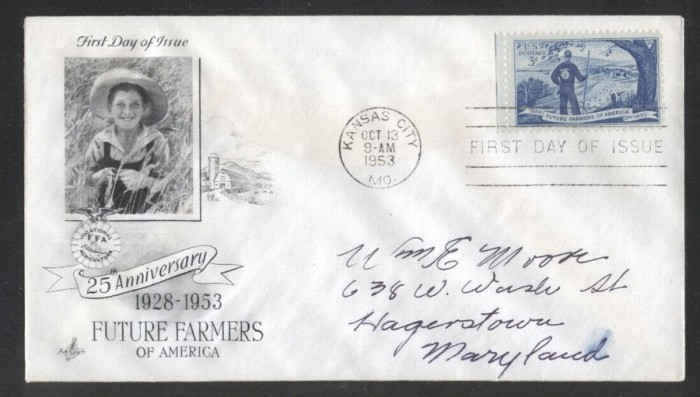 First Day of Issue
U.S. POSTAGE
3¢
FUTURE FARMERS OF AMERICA
1928 1953
KANSAS CITY
OCT 13
9-AM
1953
MO.
FIRST DAY OF ISSUE
VOCATIONAL
FFA
AGRICULTURE
25th Anniversary
1928-1953
FUTURE FARMERS
OF AMERICA
ArtCraft
Wm E Moore
638 W. Wash St
Hagerstown
Maryland